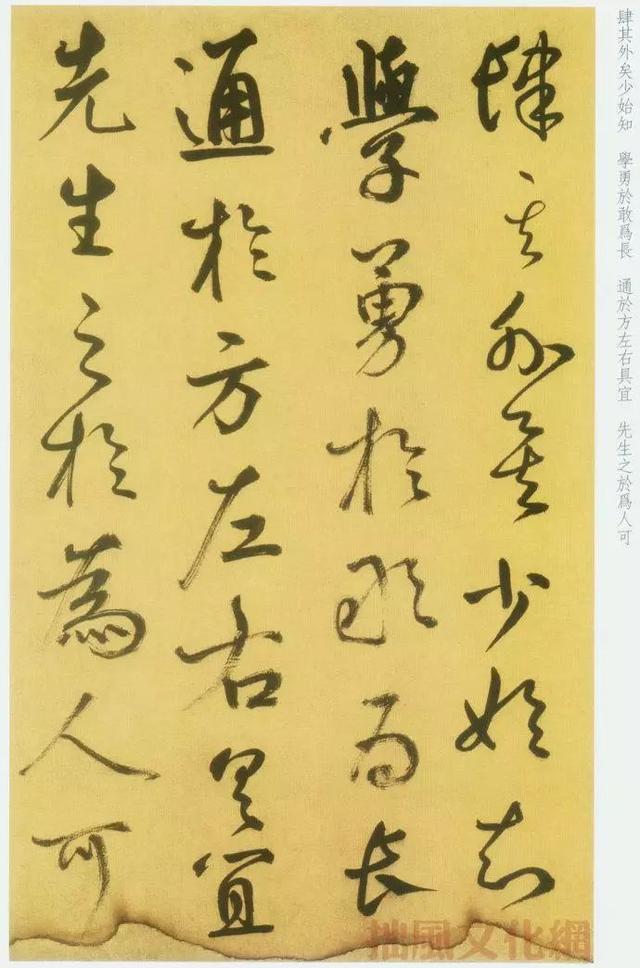 肆其外矣少始知 學勇於敢爲長 通於方左右具宜 先生之於爲人可
肆其外矣少始知
學勇於敢為長
通於方左右具宜
先生之於為人可
拙風文化網